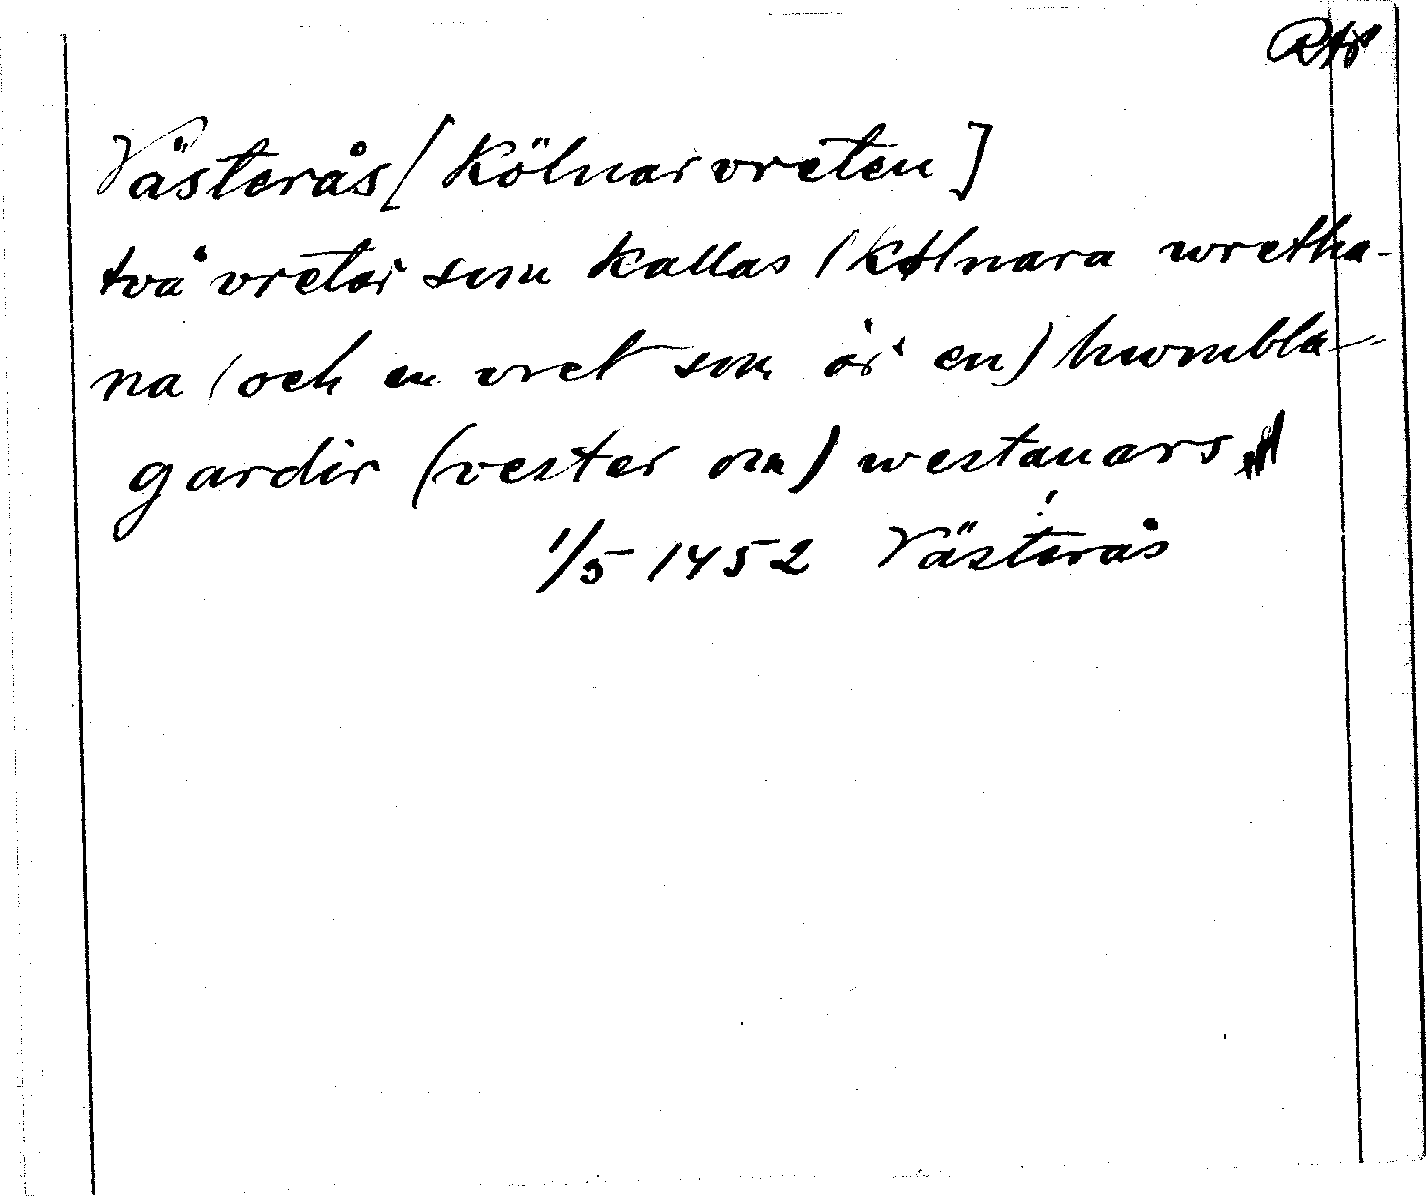 Västerås [Kölnarvreten]
två vretar som kallas (kølnara wretha-
na (och en vret som är en) humbla-
gardir (vester om) westanars
1/5 1452 Västerås